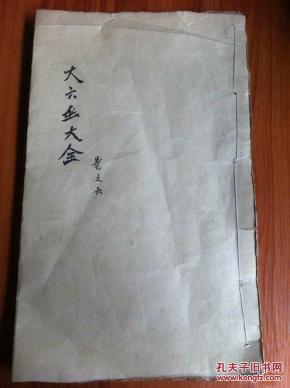 大六壬大全
卷之六
孔夫子旧书网